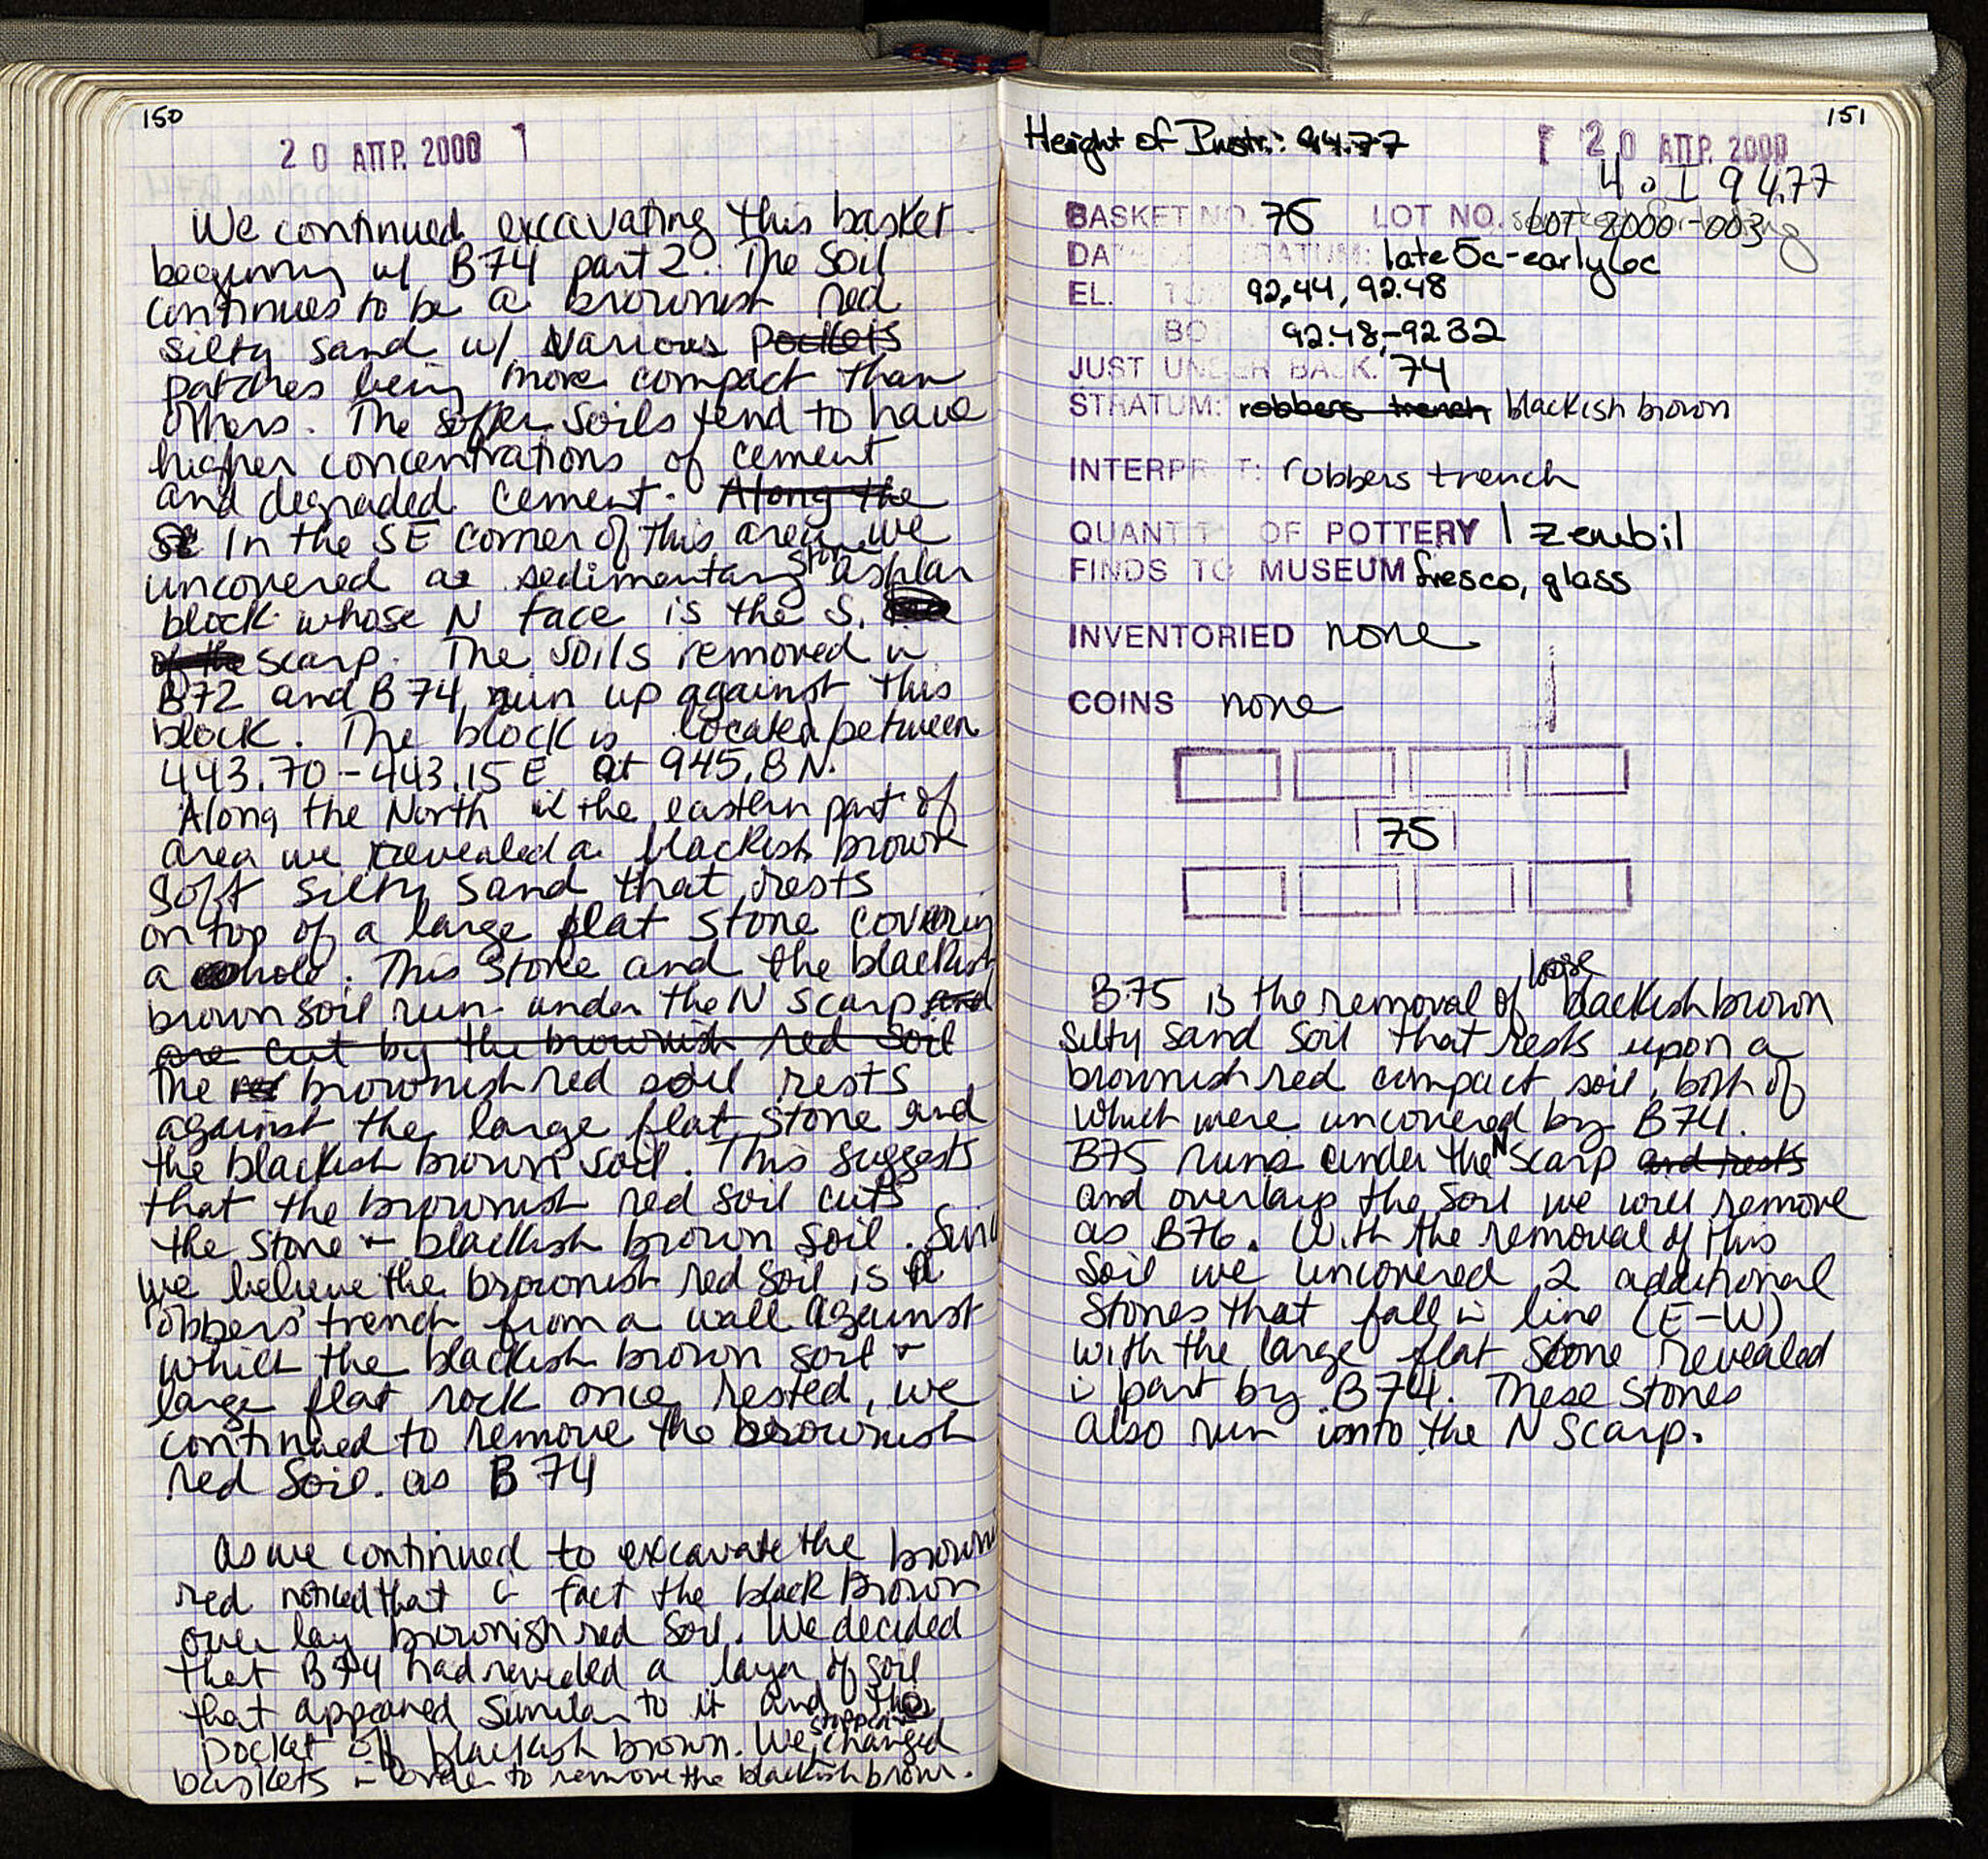 150
20 ΑΠΡ. 2000
We continued excavating this basket
beginning w/ B74 part 2. The soil
continues to be a brownish red
silty sand w/ various pockets
patches being more compact than
others. The softer soils tend to have
higher concentrations of cement
and degraded cement. Along the
In the SE corner of this area we
uncovered a sedimentary stone ashlar
block whose N face is the S.
of the scarp. The soils removed in
B72 and B74 run up against this
block. The block is located between
443.70-443.15 E at 945.8 N.
Along the North in the eastern part of
area we revealed a blackish brown
soft silty sand that rests
on top of a large flat stone covering
a hole. This stone and the blackish
brown soil run under the N scarp and
are cut by the brownish red soil
The red brownish red soil rests
against the large flat stone and
the blackish brown soil. This suggests
that the brownish red soil cuts
the stone + blackish brown soil. Since
we believe the brownish red soil is a
robbers' trench from a wall against
which the blackish brown soil +
large flat rock once rested, we
continued to remove the brownish
red soil. as B 74
As we continued to excavate the brown
red noticed that in fact the black brown
over lay brownish red soil. We decided
that B74 had revealed a layer of soil
that appeared similar to it and the
pocket of blackish brown. We stopped + changed
baskets in order to remove the blackish brown.
151
Height of Instr.: 94.77
20 ΑΠΡ. 2000
H o I 94.77
BASKET NO. 75 LOT NO. LOT 2000-003
STRATUM: late 5c-early 6c
EL. TO 92.44, 92.48
BO 92.48,-92.32
JUST UNDER BASK. 74
STRATUM: robbers trench blackish brown
INTERPRET: robbers trench
QUANTITY OF POTTERY 1 zembil
FINDS TO MUSEUM fresco, glass
INVENTORIED none
COINS none
75
B75 is the removal of loose blackish brown
silty sand soil that rests upon a
brownish red compact soil, both of
which were uncovered by B74.
B75 runs under the N scarp and rests
and overlays the soil we will remove
as B76. With the removal of this
soil we uncovered 2 additional
stones that fall in line (E-W)
with the large flat stone revealed
in part by B74. These stones
also run into the N scarp.